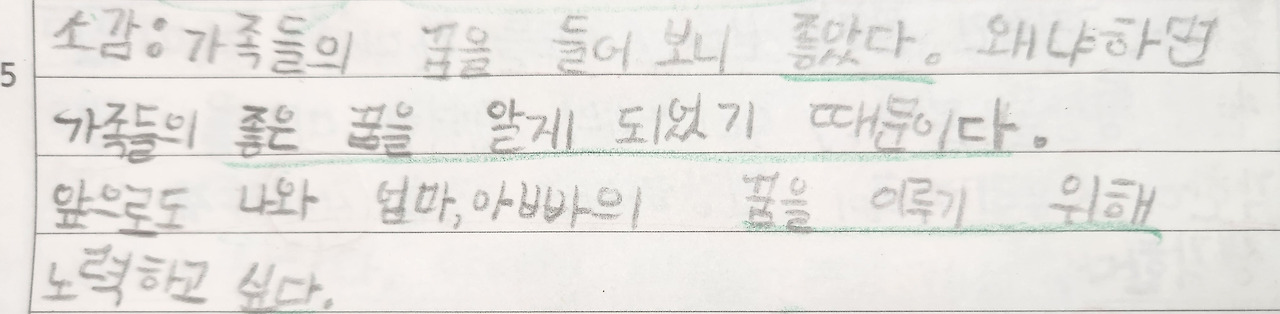 소감: 가족들의 꿈을 들어 보니 좋았다. 왜냐하면
5
가족들의 좋은 꿈을 알게 되었기 때문이다.
앞으로도 나와 엄마, 아빠의 꿈을 이루기 위해
노력하고 싶다.